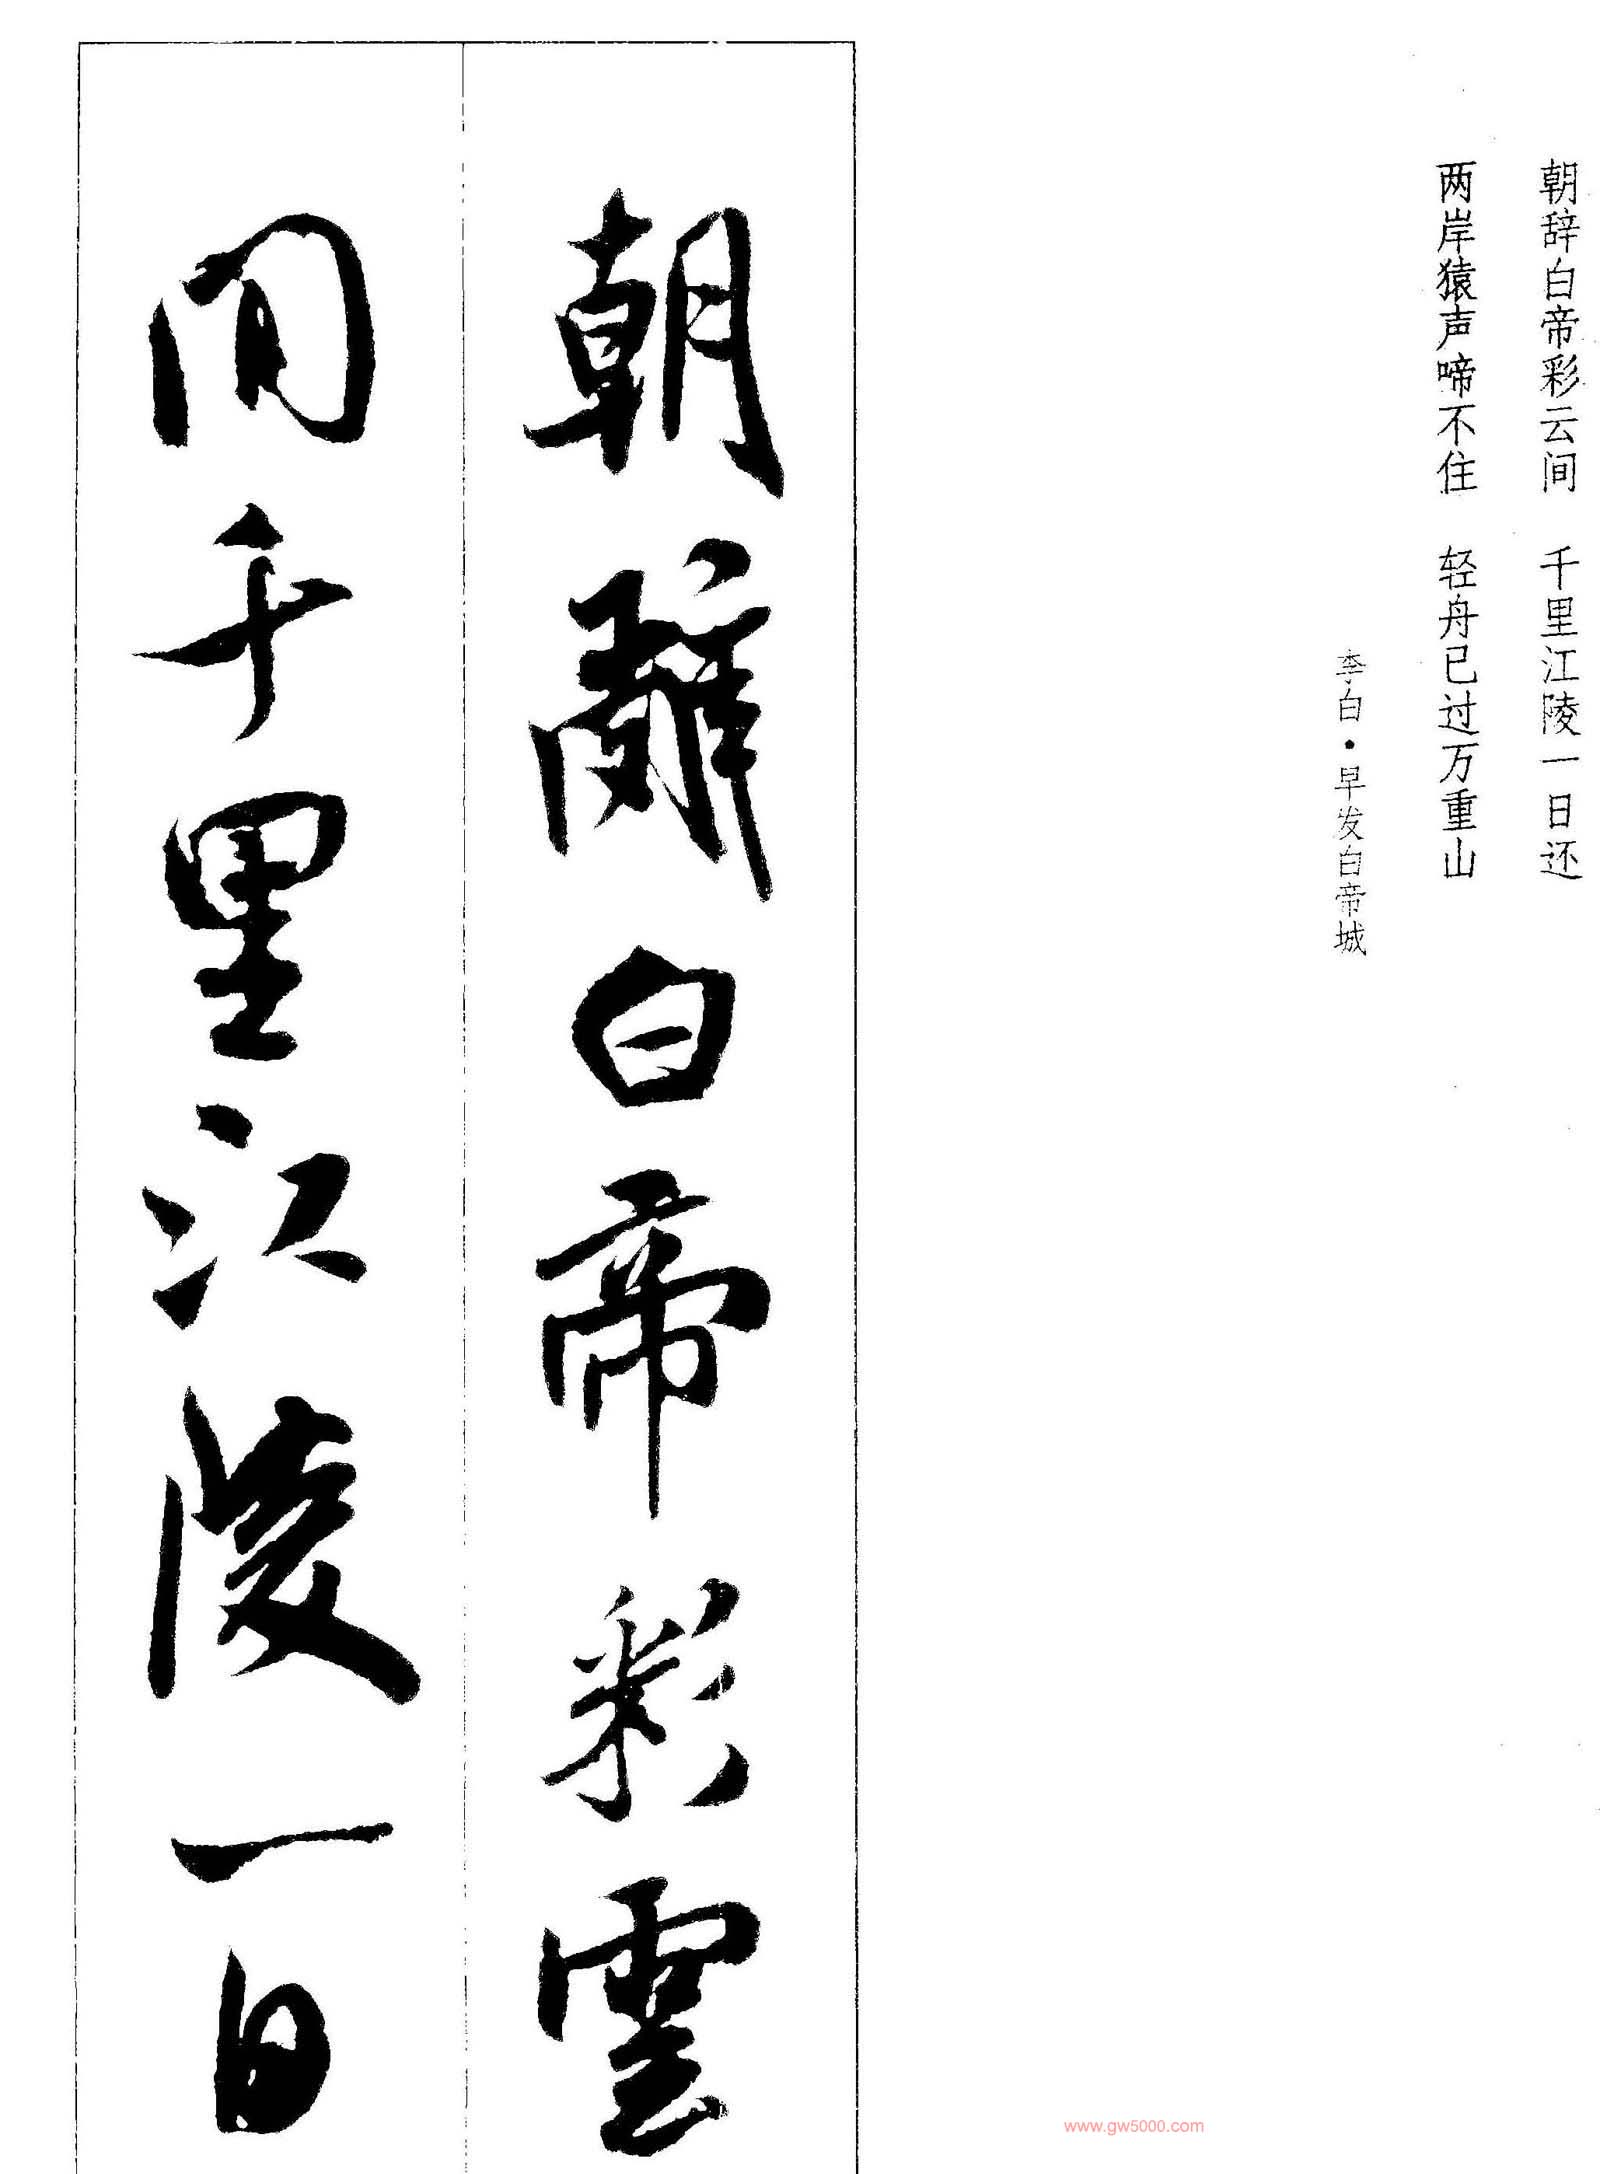 朝辞白帝彩云间　千里江陵一日还
两岸猿声啼不住　轻舟已过万重山
李白·早发白帝城
朝辭白帝彩雲
間千里江陵一日
www.gw5000.com